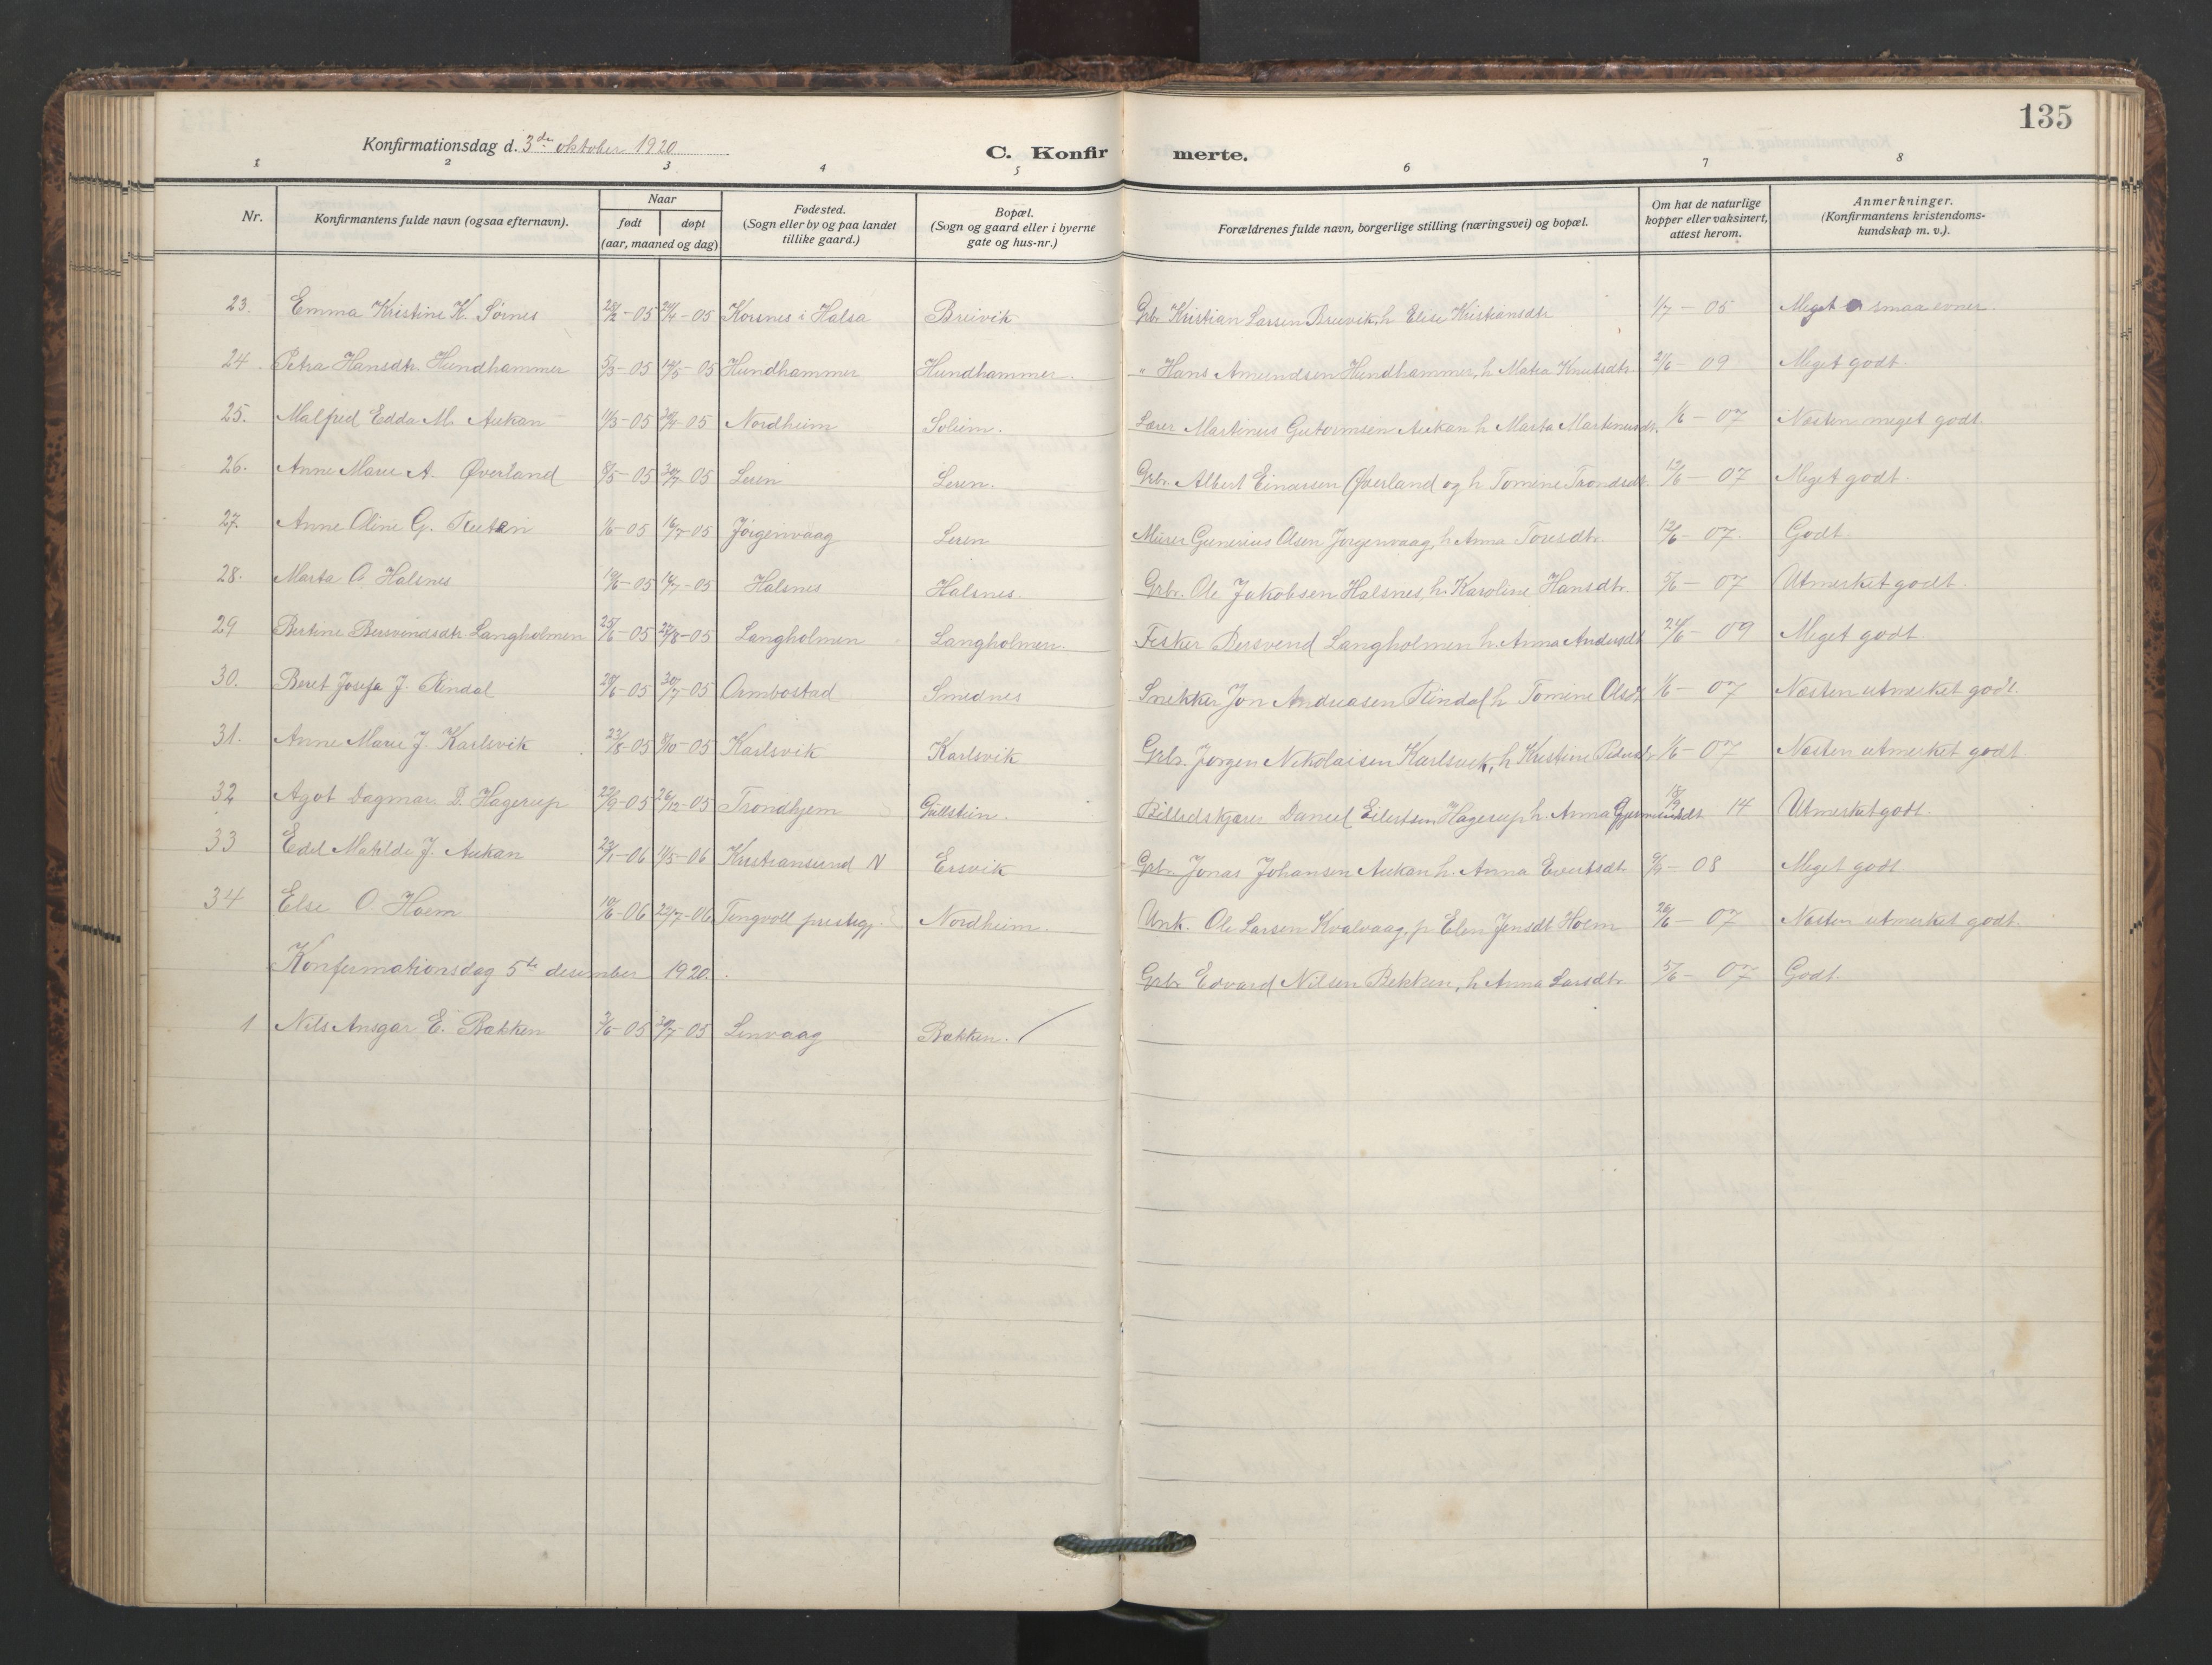 135
Konfirmationsdag d. 3de oktober 1920
C. Konfirmerte.
1 2 3 4 5 6 7 8
Nr. Konfirmantens fulde navn (ogsaa efternavn). Naar født døpt (aar, maaned og dag) Fødested. (Sogn eller by og paa landet tillike gaard.) Bopæl. (Sogn og gaard eller i byerne gate og hus-nr.) Forældrenes fulde navn, borgerlige stilling (næringsvei) og bopæl. Om hat de naturlige kopper eller vaksinert, attest herom. Anmerkninger. (Konfirmantens kristendomskundskap m. v.).
23. Emma Kristine K. Sørnes 28/2-05 24/4-05 Korsnes i Halsa Breivik Grbr. Kristian Larsen Breivik, h Elise Kristiansdtr 1/7-05 Meget smaa evner.
24. Petra Hansdtr. Hundhammer 5/3-05 14/5-05 Hundhammer Hundhammer. " Hans Amundsen Hundhammer, h Matea Knutsdtr. 2/6-09 Meget godt.
25. Malfred Edda M. Aukan 11/3-05 -05 Nordheim Solem. Lærer Martinus Gutormsen Aukan h Marta Martinusdtr. 1/6-07 Næsten meget godt
26. Anne Marie A. Øverland 8/5-05 30/7-05 Leren Leren. Grbr. Albert Einarsen Øverland og h Tomine Trondsdtr 12/6-07 Meget godt.
27. Anne Oline G. 1/6-05 16/7-05 Jørgenvaag Leren Murer Gunerius Olsen Jørgenvaag, h Anna Toresdtr. 12/6-07. Godt.
28. Marta O. Halsnes 10/6-05 16/7-05 Halsnes Halsnes. Grbr. Ole Jakobsen Halsnes, h. Karoline Hansdtr. 5/6-07 Utmerket godt.
29 Bertine Bersvendsdtr Langholmen 25/6-05 27/8-05 Langholmen Langholmen. Fisker Bersvend Langholmen h. Anna Andersdtr 24/6-09 Meget godt.
30. Beret Josefa J. Rindal 28/6-05 30/7-05 Ormbostad Smednes Snekker Jon Andreasen Rindal h Tomine Olsdtr 1/6-07 Næsten utmerket godt.
31. Anne Marie J. Karlsvik 23/8-05 8/10-05 Karlsvik Karlsvik Grbr. Jørgen Nikolaisen Karlsvik, h Kristine Pedersdtr 1/6-07 Næsten utmerket godt
32 Agot Dagmar D. Hagerup 22/9-05 26/12-05 Trondhjem Gullstein. Billedskjærer Daniel Eilertsen Hagerup h. Anna Gjermundsdtr 18/9 14 Utmerket godt.
33 Edel Matilde J. Aukan 23/1-06 1/5-06 Kristiansund N Ersvik Grbr. Jonas Johansen Aukan h. Anna Evertsdtr 9/6-08 Meget godt
34 Else O. Hoem 10/6-06 22/7-06 Tingvoll prestegj. Nordheim. Unk. Ole Larsen Kvalvaag, p Elen Jensdt Hoem 26/6-07 Næsten utmerket godt.
Konfirmationsdag 5te desember 1920.
1 Nils Ansgar E. Bækken 2/6-05 30/7-05 Lenvaag Bækken. Grbr Edvard Nilsen Bekken, h Anna Larsdtr. 5/6-07 Godt.